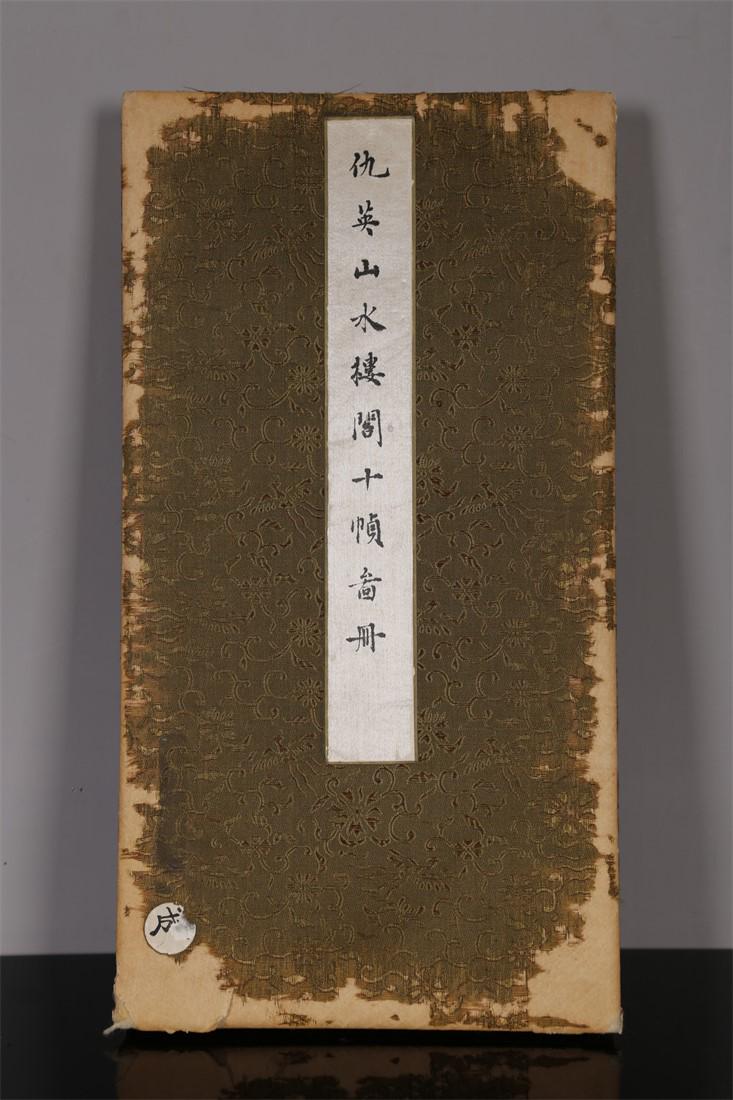 仇英山水樓閣十幀啚冊